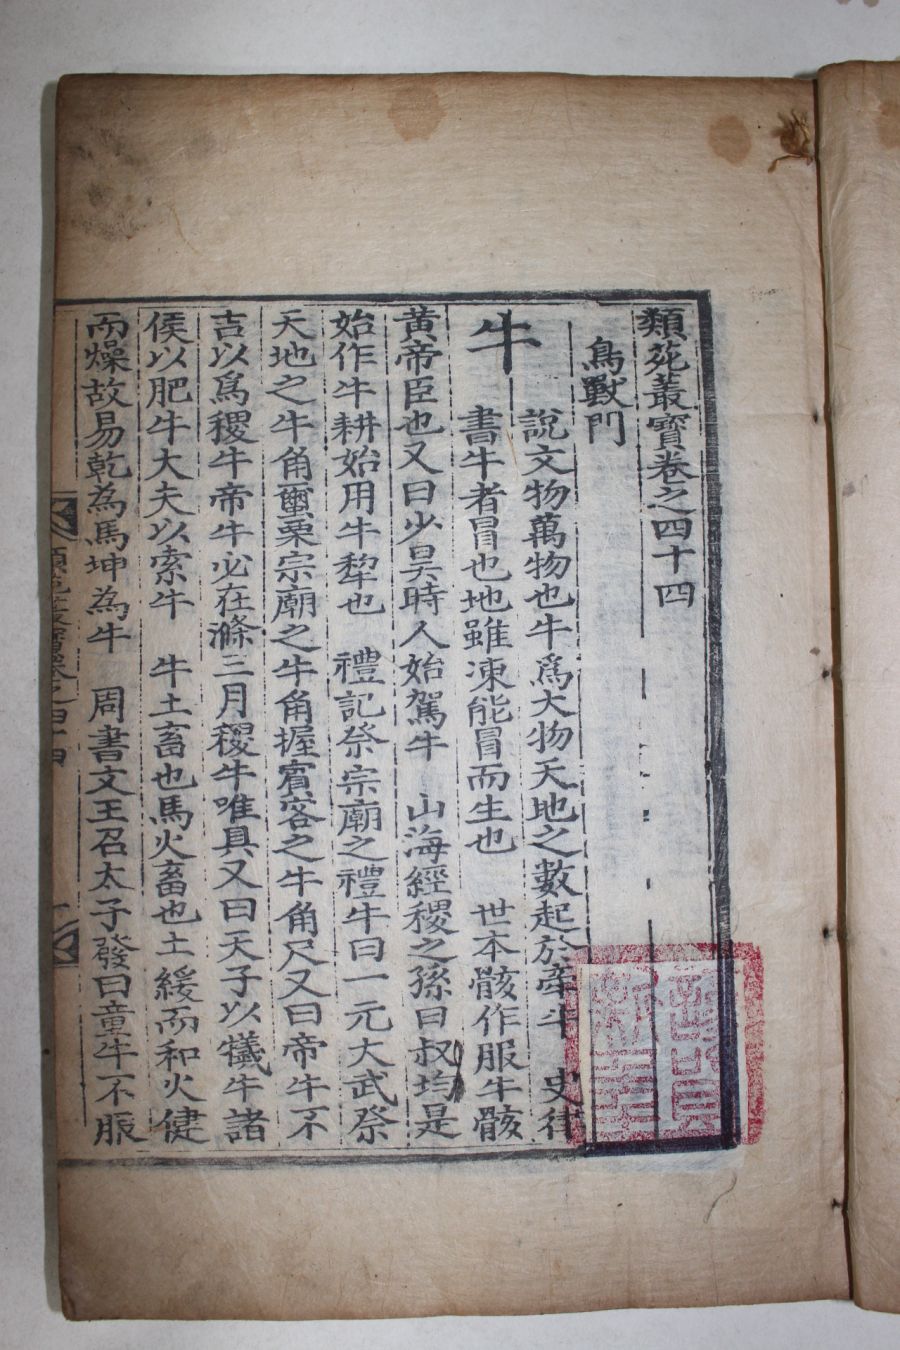 類苑叢寶卷之四十四
鳥獸門
牛
說文物萬物也牛爲大物天地之數起於牽牛 史律
書牛者冒也地雖凍能冒而生也 世本骸作服牛骸
黃帝臣也又曰少昊時人始駕牛 山海經稷之孫曰叔均是
始作牛耕始用牛犂也 禮記祭宗廟之禮牛曰一元大武祭
天地之牛角蠒栗宗廟之牛角握賓客之牛角尺又曰帝牛不
吉以爲稷牛帝牛必在滌三月稷牛唯具又曰天子以犧牛諸
侯以肥牛大夫以索牛 牛土畜也馬火畜也土緩而和火健
而燥故易乾為馬坤為牛 周書文王召太子發曰童牛不服
類苑叢寶卷之四十四